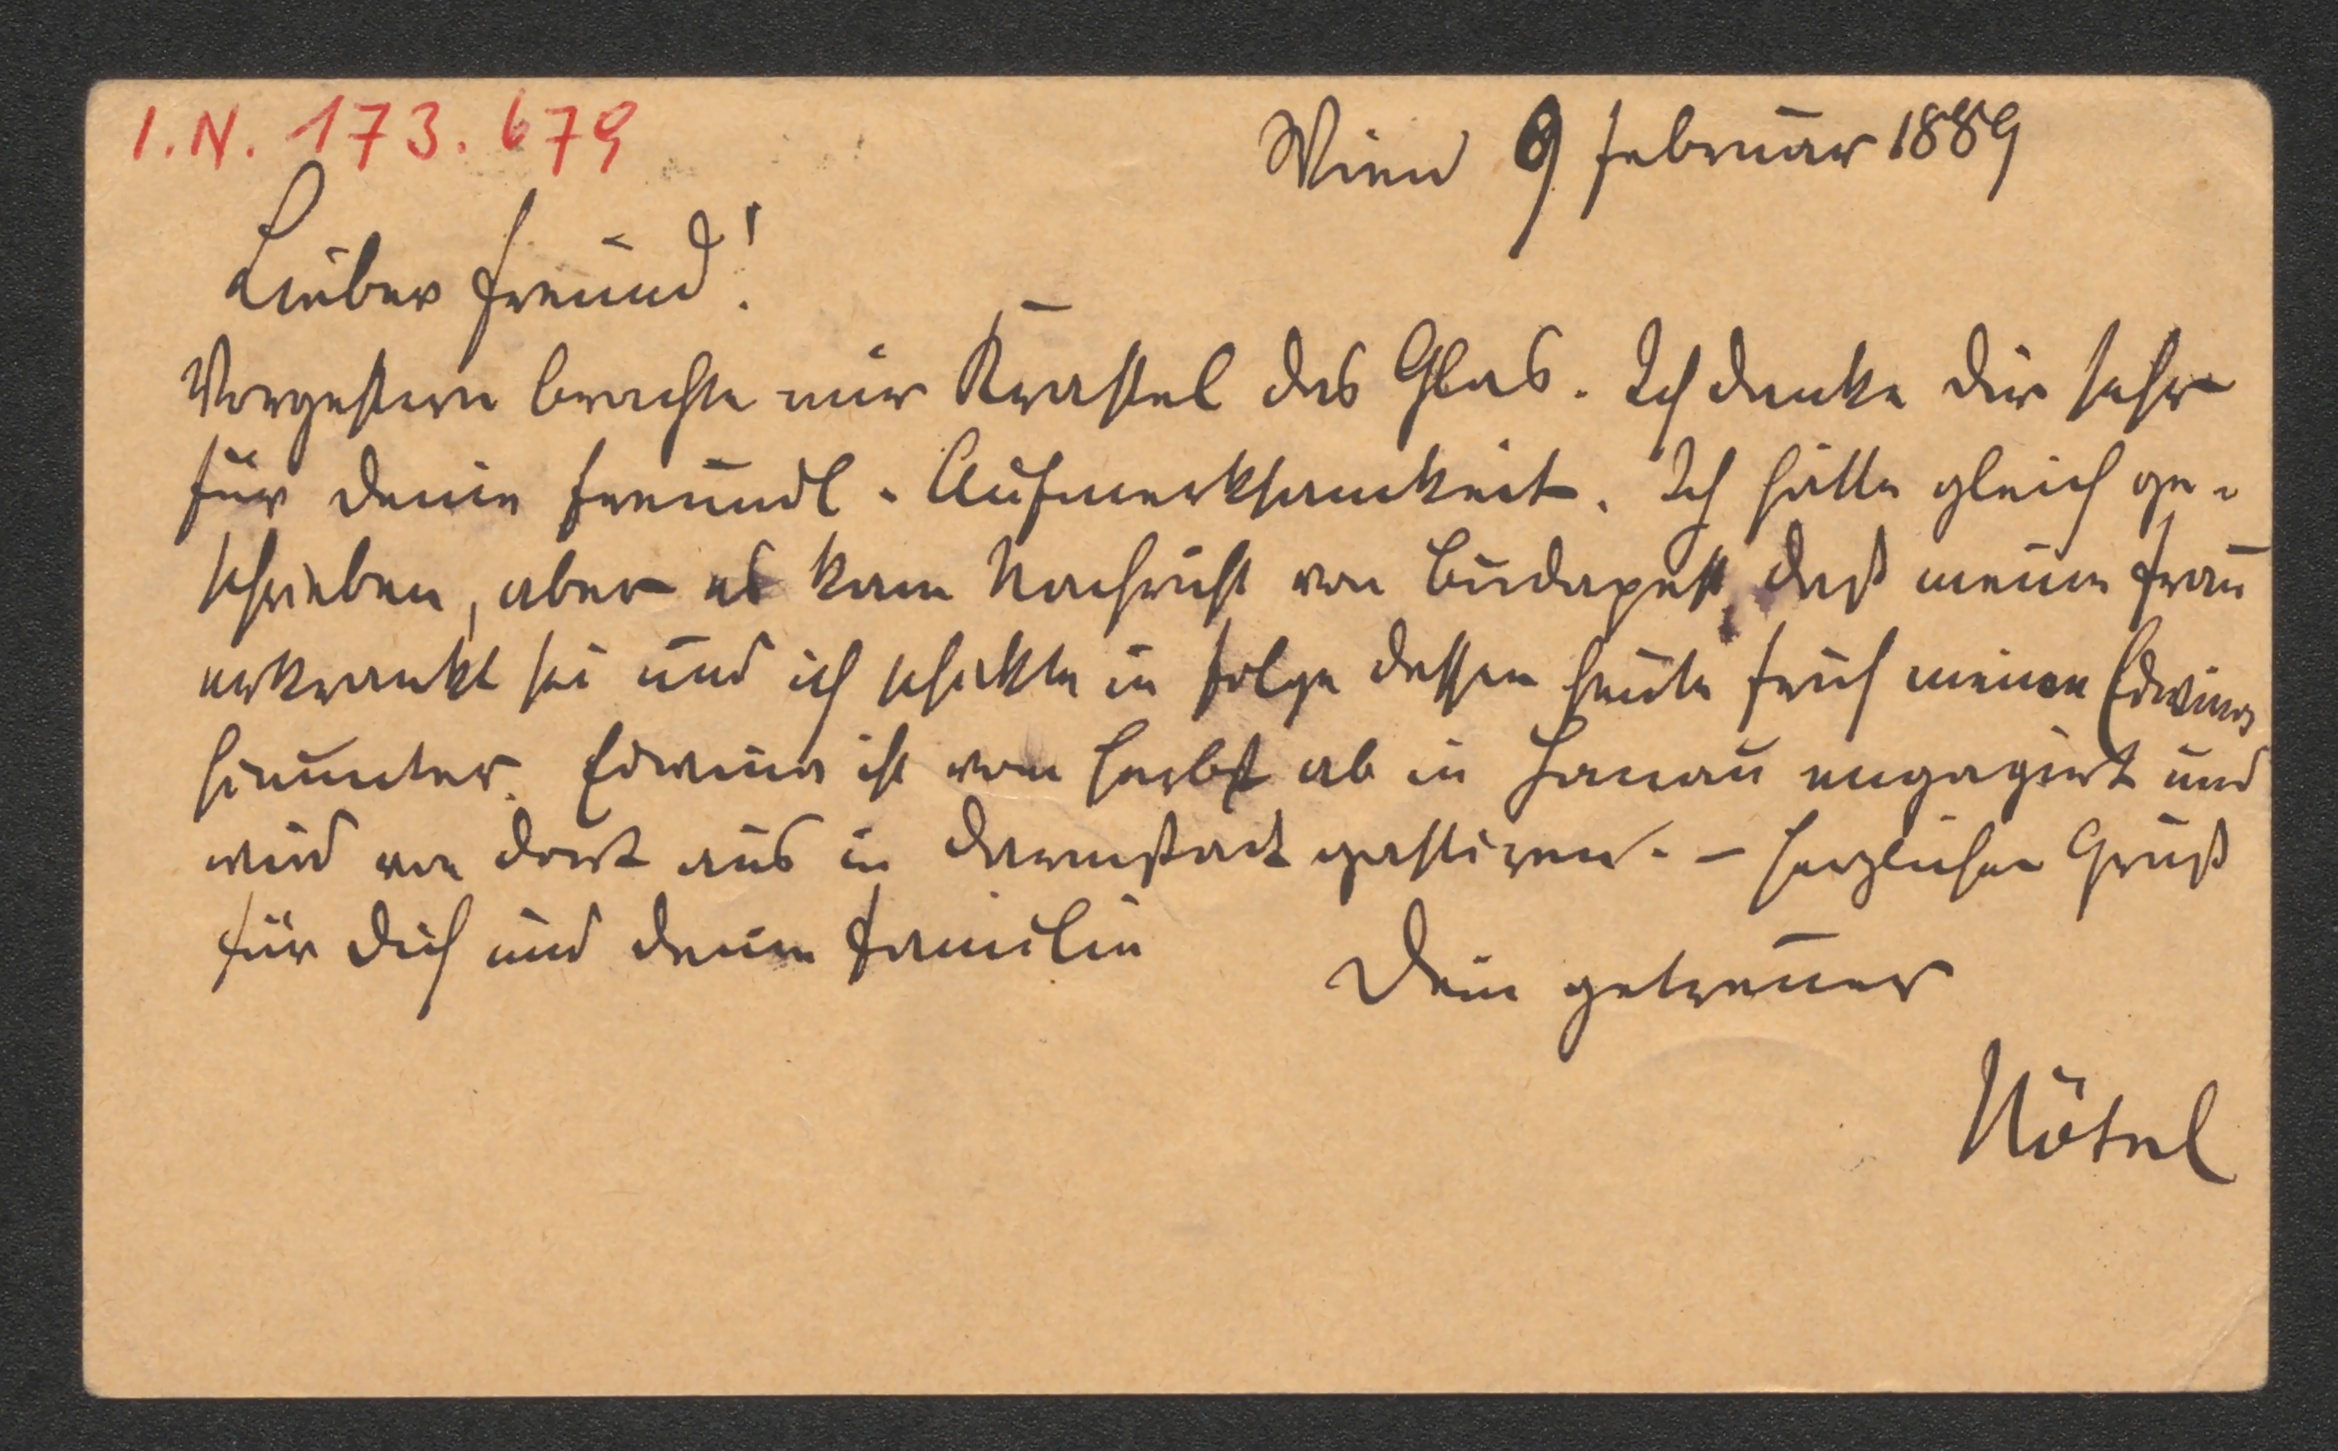 I.N. 173.679
Wien 9 Februar 1889
Lieber Freund!
Vorgestern brachte mir Krastel das Glas. Ich danke Dir sehr
für Deine freundl. Aufmerksamkeit. Ich hätte gleich ge-
schrieben, aber es kam Nachricht von Budapest, daß meine Frau
erkrankt sei und ich schickte in Folge dessen heute früh meine Edwina
hinunter. Edwina ist vom Herbst ab in Hanau engagirt und
wird von dort aus in Darmstadt gastiren. – Herzlichen Gruß
für Dich und Deine Familie
Dein getreuer
Nötel